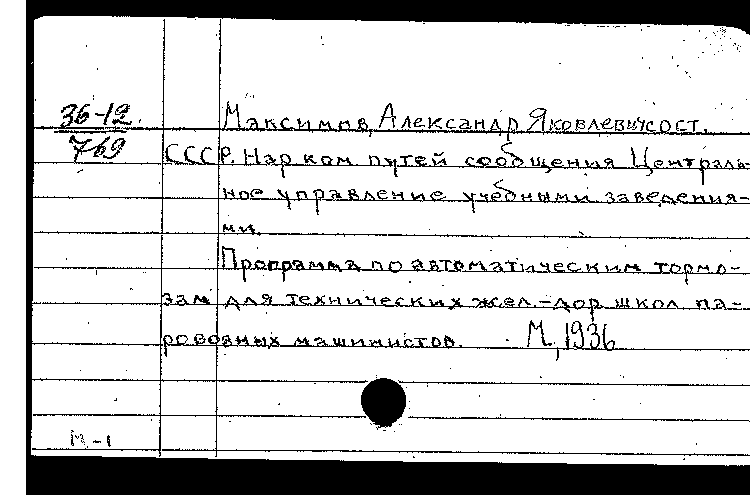 36-12
769
Максимов, Александр Яковлевич сост.
СССР. Нар ком путей сообщения Централь-
ное управление учебными заведения-
ми.
Программа по автоматическим тормо-
зам для технических жел.-дор школ па-
ровозных машинистов. М, 1936
М-1